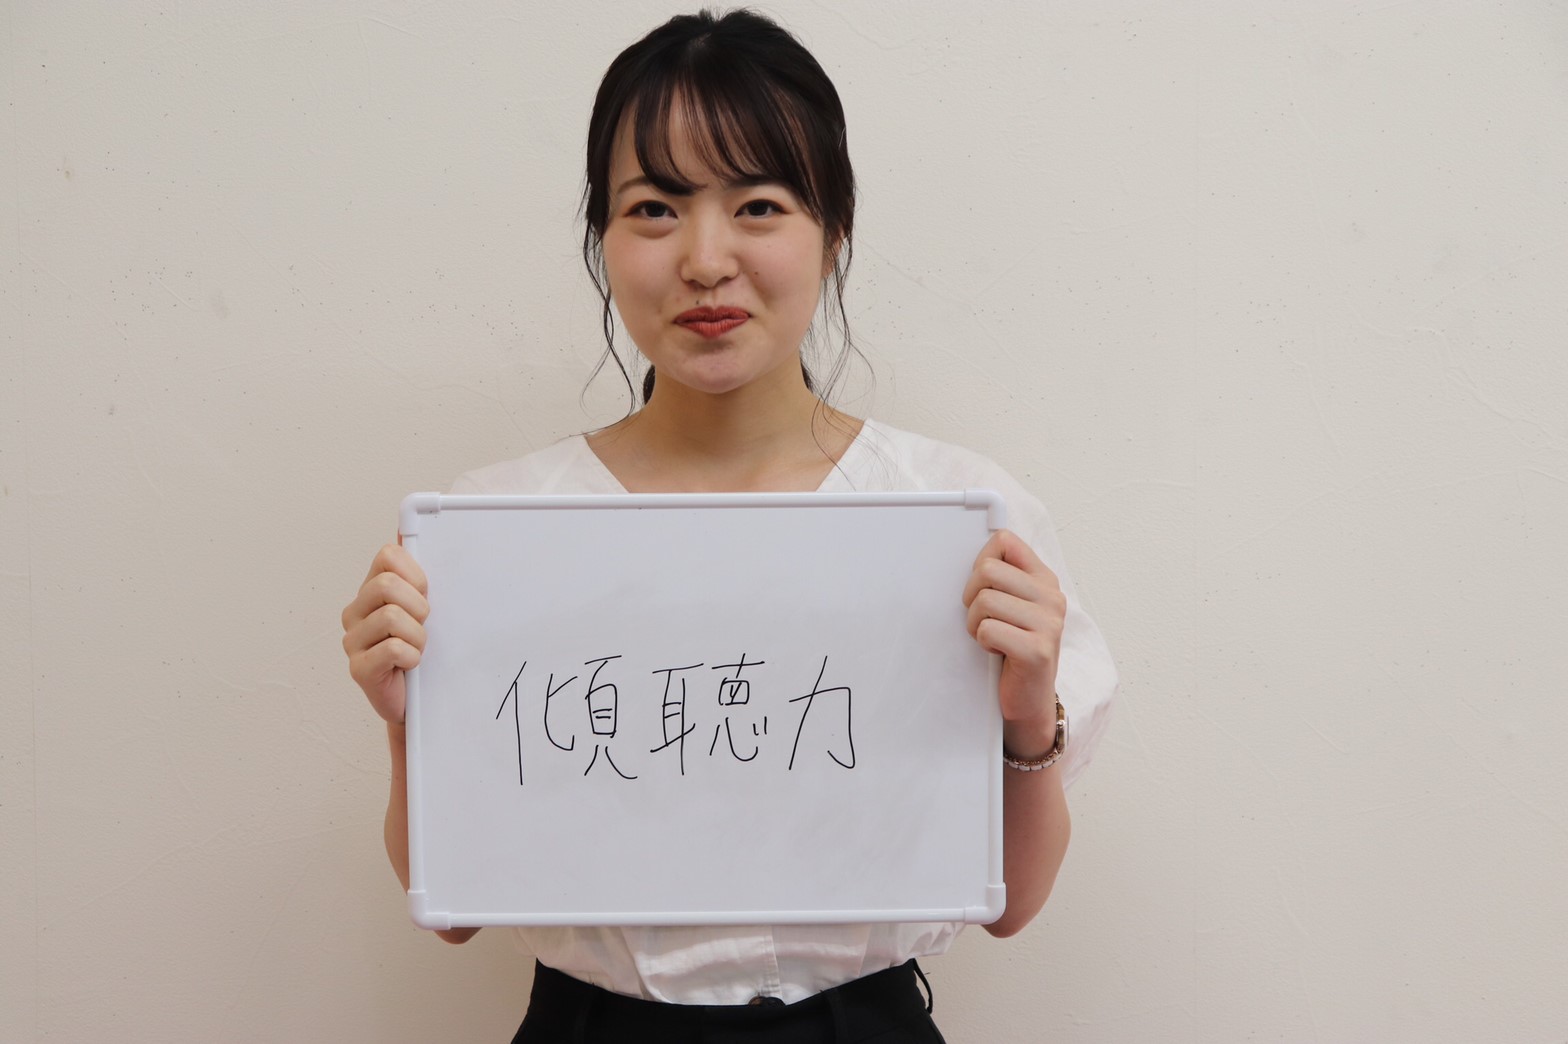 傾聴力